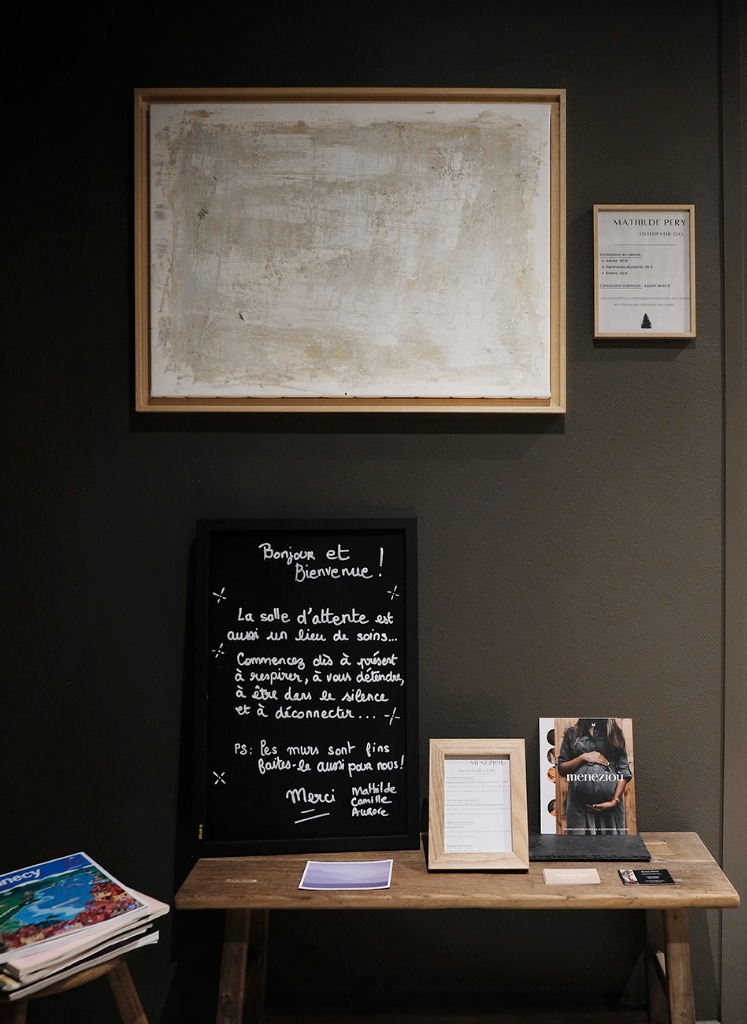 MATHILDE PERY
OSTEOPATHE D.O
Consultation au cabinet :
Adulte : 60 €
Consultation à domicile : à partir de
Bonjour et
Bienvenue !
La salle d'attente est
aussi un lieu de soins...
Commencez dès à présent
à respirer, à vous détendre,
à être dans le silence
et à déconnecter...
PS: Les murs sont fins
faites-le aussi pour nous!
Merci
Mathilde
Camille
Aurore
MENEZIOÙ
menezioù
necy